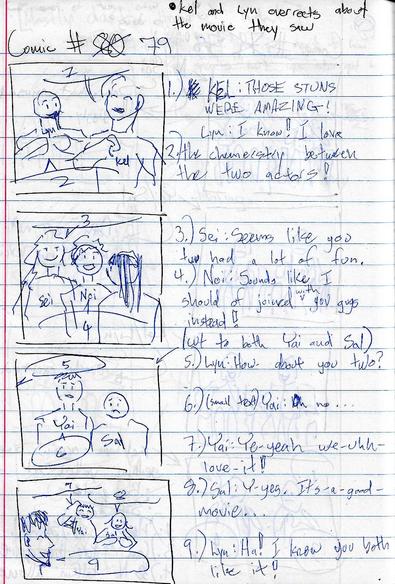 • Kel and Lyn overreets about
the movie they saw
Comic # 79
1
Lyn
Kel
2
1.) Kel: THOSE STUNS
WERE AMAZING!
Lyn: I know! I love
2. the chemerstry between
the two actors!
3
Sei
Noi
4
3.) Sei: Seems like you
two had a lot of fun.
4.) Noi: Sounds like I
should of joined with you guys
instead!!
(cut to both Yai and Sal)
5
Yai
Sal
6
5.) Lyn: How about you two?
6.) (small text) Yai: Uh no...
7.) Yai: Ye-yeah we-uhh-
love-it!!
7
8
9
8.) Sal: Y-yes. It's-a-good-
movie...
9.) Lyn: Ha! I knew you both
like it!!